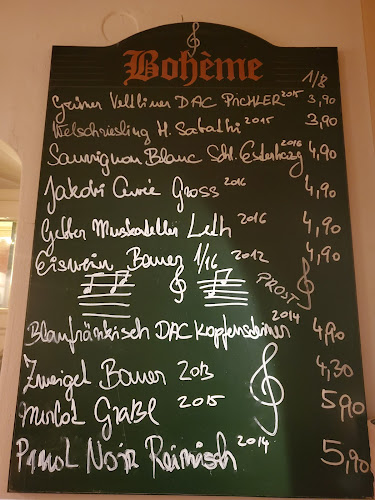 Bohème
1/8
Grüner Veltliner DAC PICHLER 2015 3,90
Welschriesling H. Sabathi 2015 3,90
Sauvignon Blanc Schl. Esterhazy 2016 4,90
Jakobi Cuvée Gross 2016 4,90
Gelber Muskateller Leth 2016 4,90
Eiswein Bauer 1/16 2012 4,90
PROST
Blaufränkisch DAC Kopfensteiner 2014 4,90
Zweigel Bauer 2013 4,30
Merlot Graßl 2015 5,90
Pinot Noir Reinisch 2014 5,90